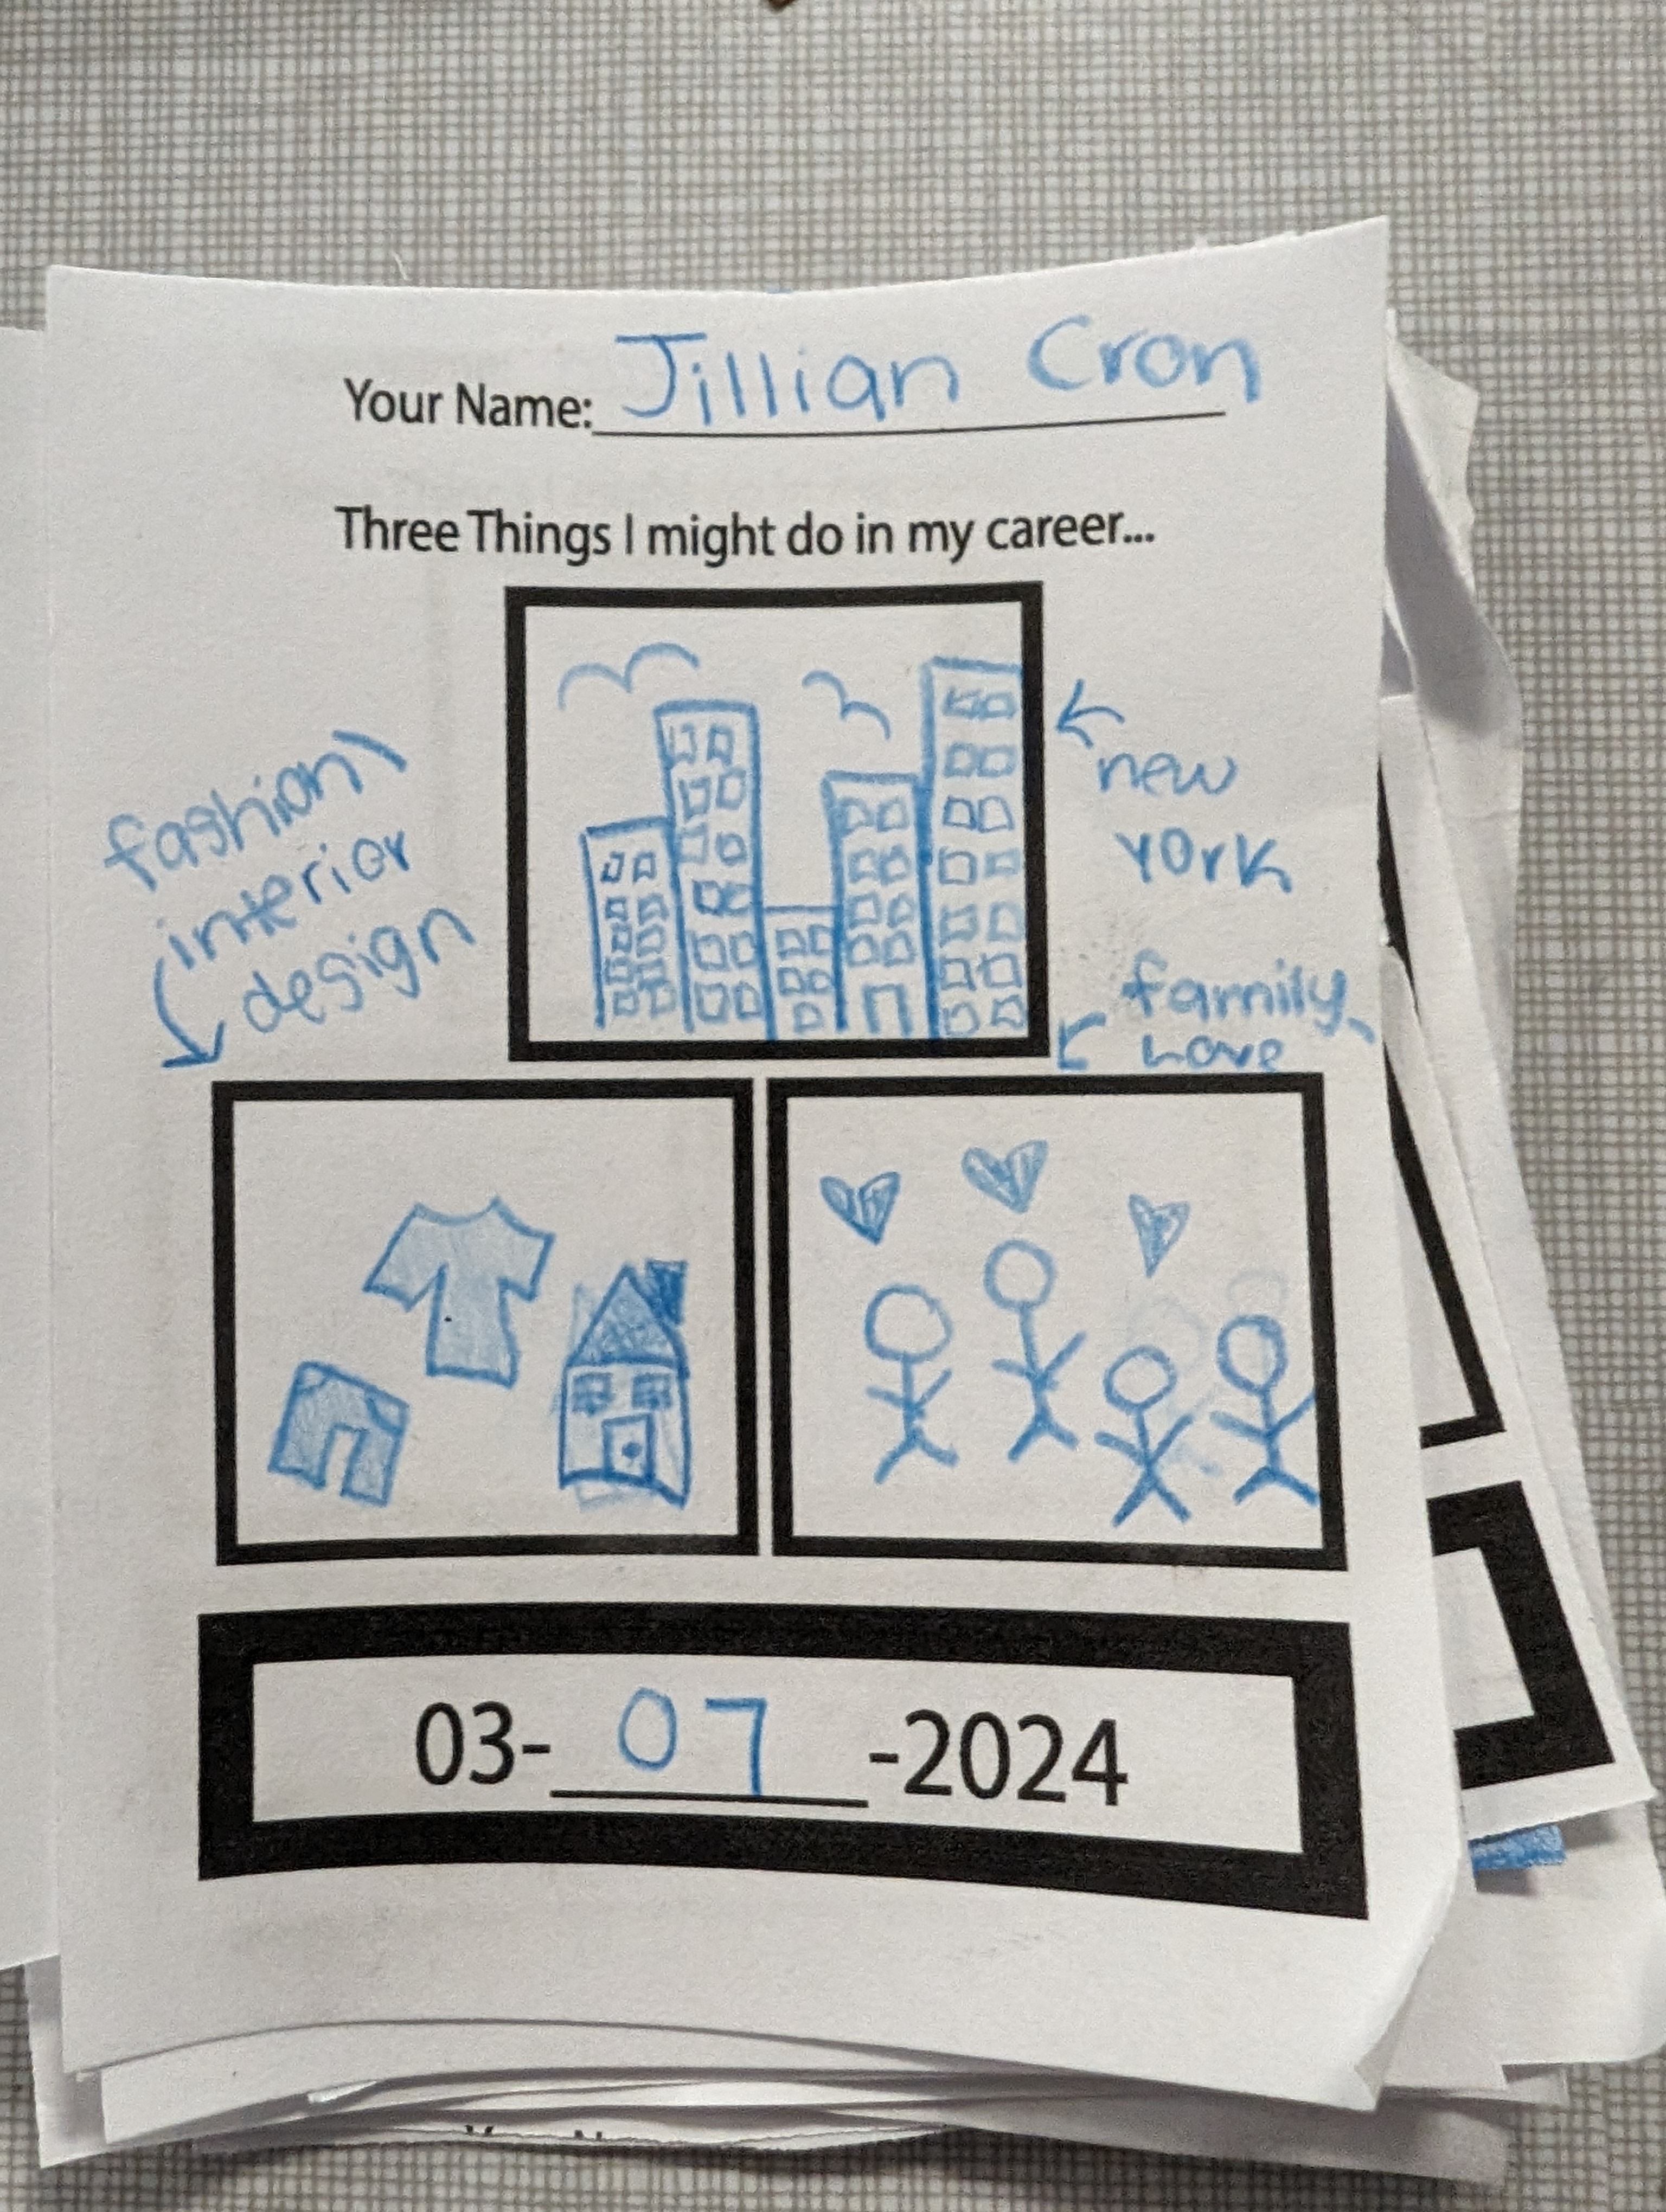 Your Name: Jillian Cron
Three Things I might do in my career...
new
york
fashion)
interior
design
family
Love
03- 07 -2024